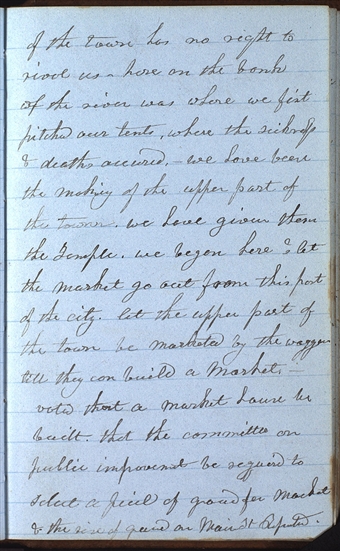 of the town has no right to
rivol us - here on the bank
of the river was where we first
pitched our tents, where the sickness
& deaths occured, - we have been
the making of the upper part of
the town. we have given them
the Temple. we began here & let
the market go out from this part
of the city. let the upper part of
the town be marketed by the waggons
till they can build a Market, -
voted that a market house be
built. that the committee on
public improvment be required to
select a piece of ground for Market
& the rise of ground on Main St